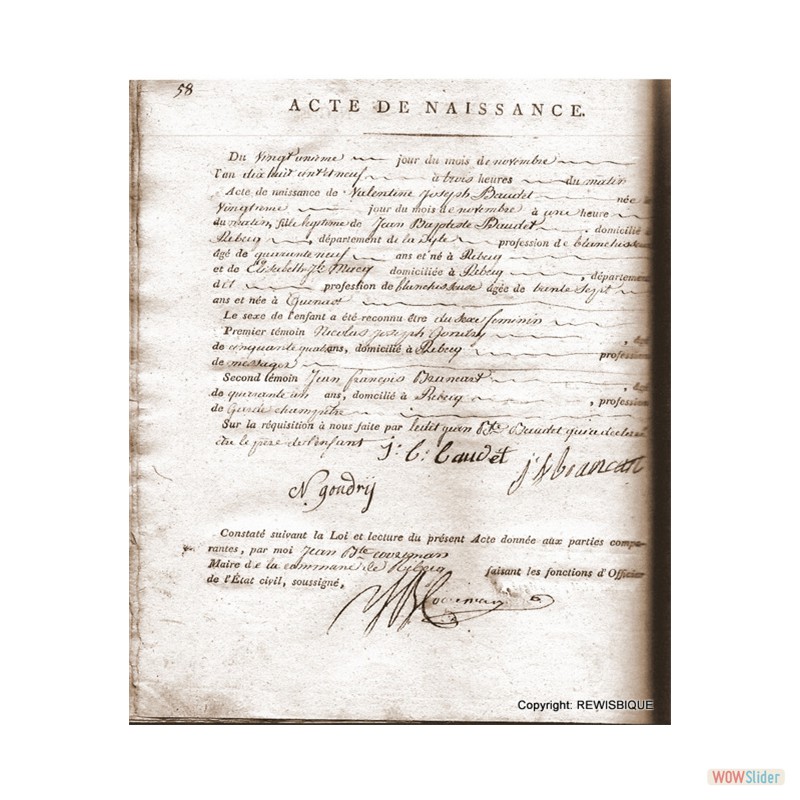 58
ACTE DE NAISSANCE.
Du Vingt unieme jour du mois de novembre
l'an dix huit cent et neuf à trois heures du matin
Acte de naissance de Valentine Joseph Baudet née le
Vingtieme jour du mois de novembre à une heure
du matin, fille legitime de Jean Baptiste Baudet, domicilié à
Rebecq, département de la Dyle profession de blanchisseur
âgé de quarante neuf ans et né à Rebecq
et de Elisabeth domiciliée à Rebecq, département
dit profession de blanchisseuse âgée de trente sept
ans et née à Quenast
Le sexe de l'enfant a été reconnu être du sexe feminin
Premier témoin Nicolas Joseph Gondry, âgé
de cinquante quatre ans, domicilié à Rebecq profession
de messager
Second témoin Jean françois Brancart, âgé
de quarante un ans, domicilié à Rebecq, profession
de Garde champetre
Sur la réquisition à nous faite par ledit jean Bte Baudet qui a declaré
être le père de l'enfant
J: b: baudet
N. gondrij
Constaté suivant la Loi et lecture du présent Acte donnée aux parties compa-
rantes, par moi Jean Bte
Maire de la commune de Rebecq faisant les fonctions d'Officier
de l'État civil, soussigné,
Copyright: REWISBIQUE
WOWSlider